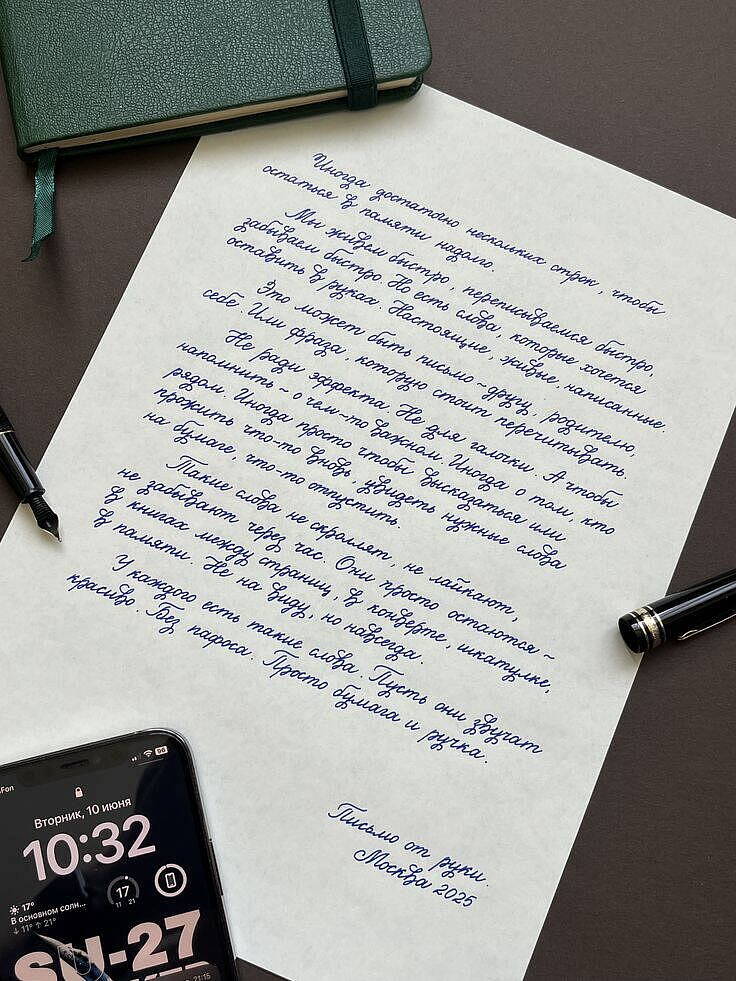 Иногда достаточно нескольких строк, чтобы
остаться в памяти надолго.
Мы живём быстро, переписываемся быстро,
забываем быстро. Но есть слова, которые хочется
оставить в руках. Настоящие, живые, написанные.
Это может быть письмо ~ другу, родителю,
себе. Или фраза, которую стоит перечитывать.
Не ради эффекта. Не для галочки. А чтобы
напомнить ~ о чем-то важном. Иногда о том, кто
рядом. Иногда просто чтобы высказаться или
прожить что-то вновь, увидеть нужные слова
на бумаге, что-то отпустить.
Такие слова не скроллят, не лайкают,
не забывают через час. Они просто остаются ~
в книгах между страниц, в конверте, шкатулке,
в памяти. Не на виду, но навсегда.
У каждого есть такие слова. Пусть они звучат
красиво. Без пафоса. Просто бумага и ручка.
Письмо от руки.
Москва 2025
Fon
96
Вторник, 10 июня
10:32
17°
В основном солн...
↓ 11° ↑ 21°
17
11 21
SU-27
21:15